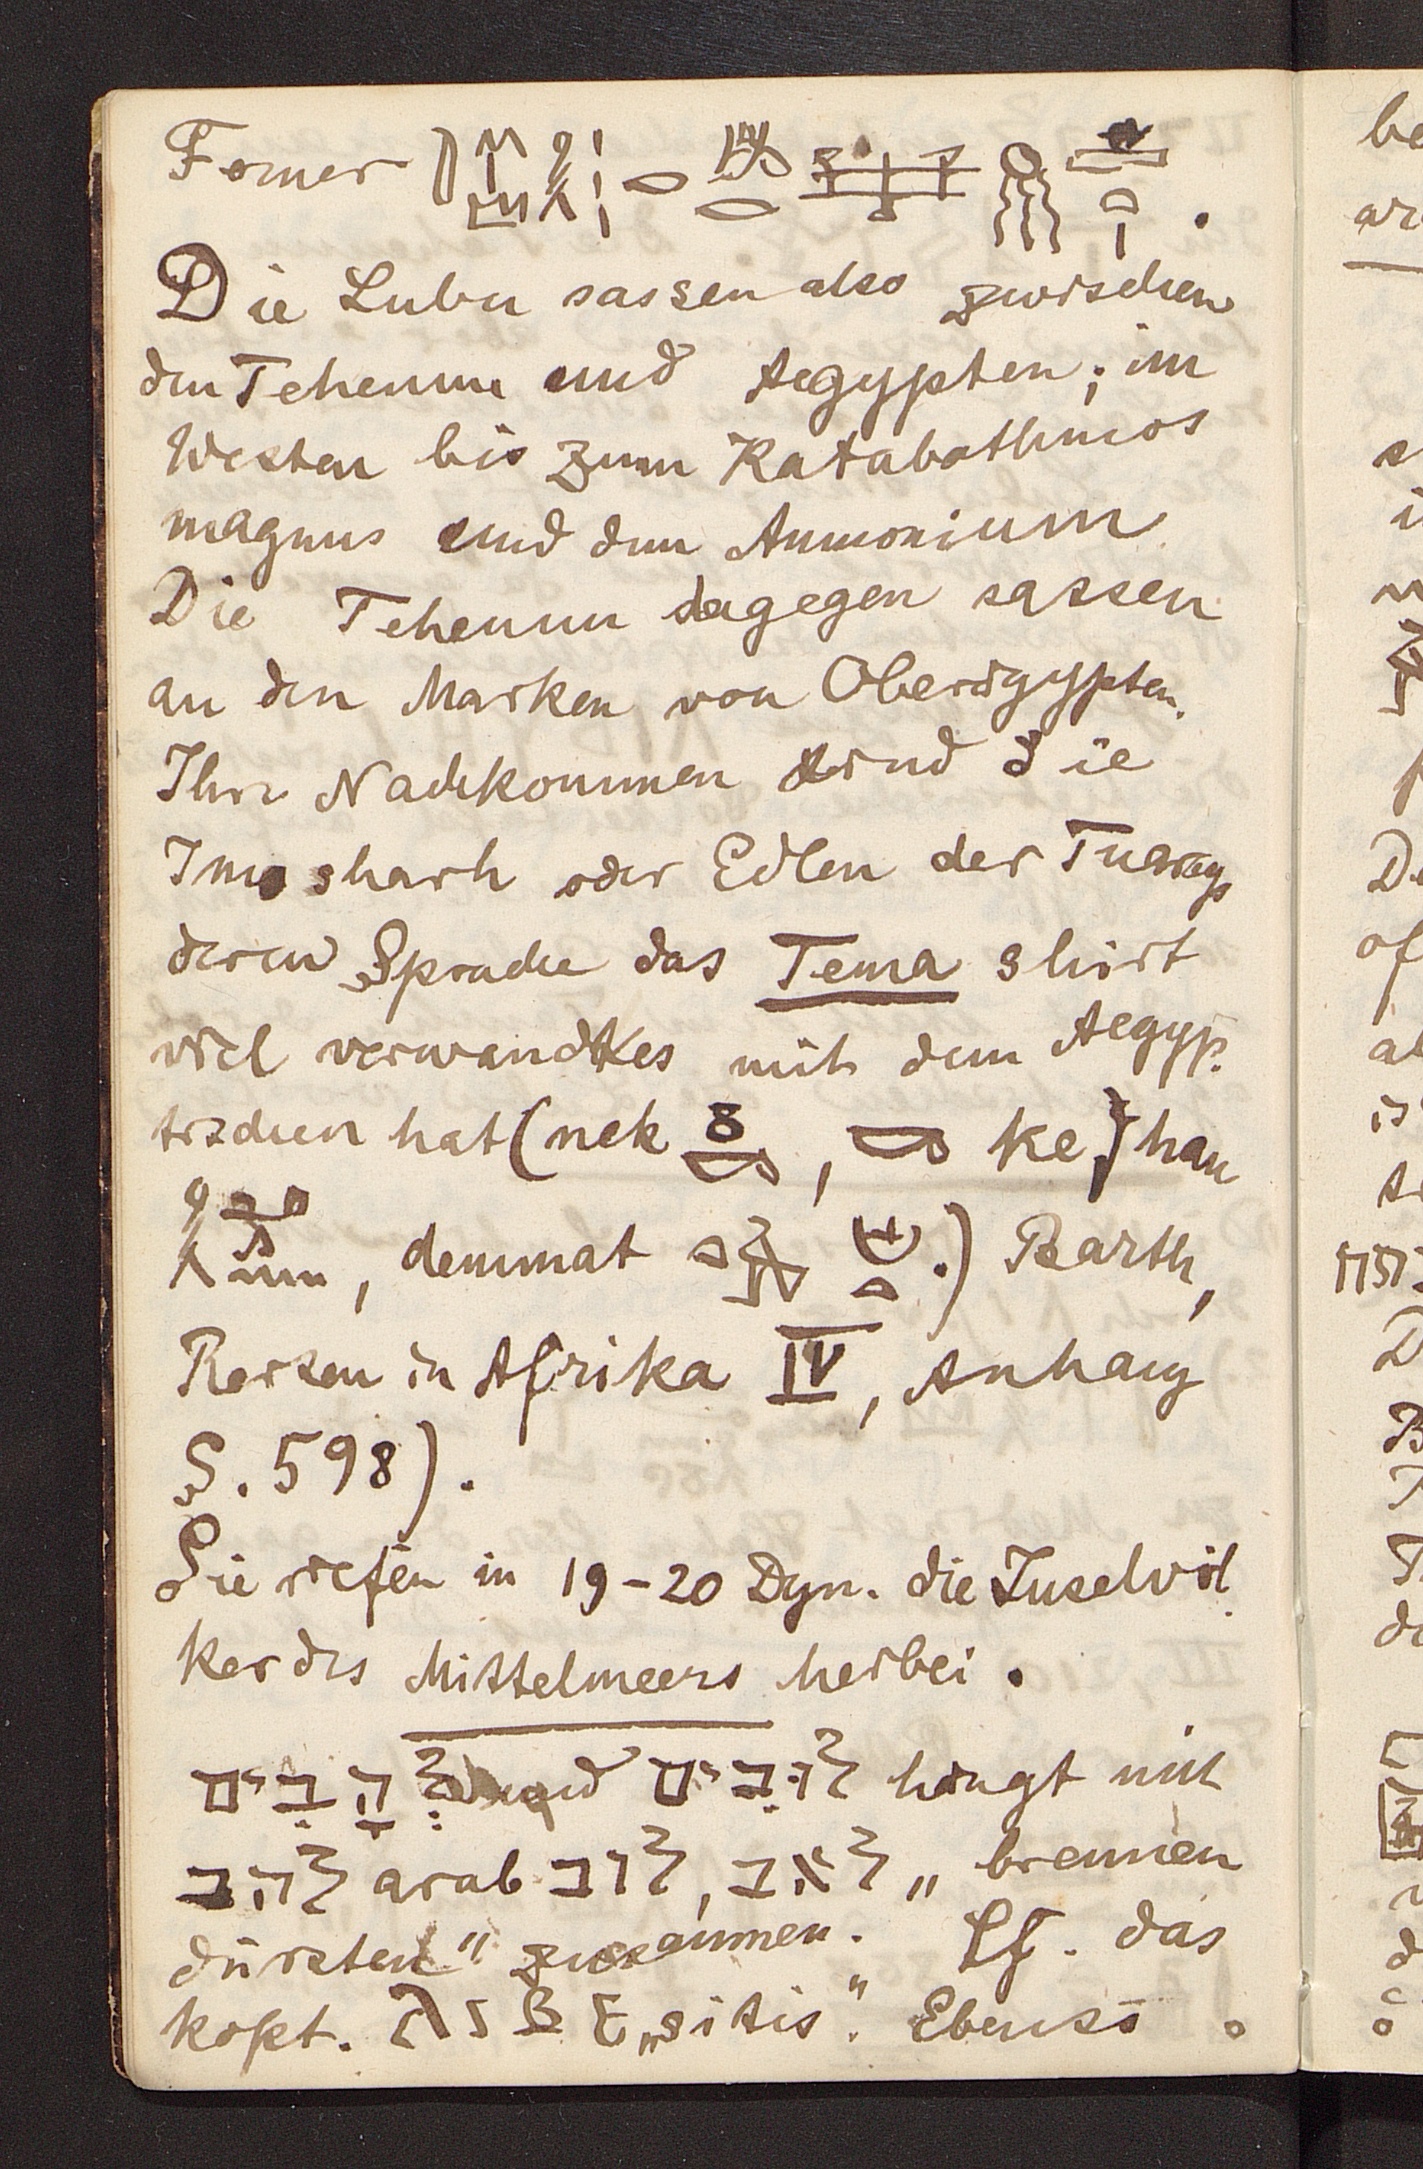 Ferner
Die Lubu sassen also zwischen
den Tehennu und Aegypten; im
Westen bis zum Katabathmos
magnus und dem Ammonium
Die Tehennu dagegen sassen
an den Marken von Oberägypten.
Ihre Nachkommen sind die
Imosharh oder Edlen der Tuaregs
deren Sprache das Tema shirt
viel verwandtes mit dem Aegyp.
tischen hat (nek , ke) han
, demmat .) Barth,
Reisen in Afrika IV, Anhang
S. 598).
Sie riefen in 19-20 Dyn. die Inselvöl
ker des Mittelmeers herbei.
לְהָבִים und לוּבִים hängt mit
להב arab לוב, לאב „brennen
dürsten" zusammen. Cf. das
kopt. „sitis". Ebenso